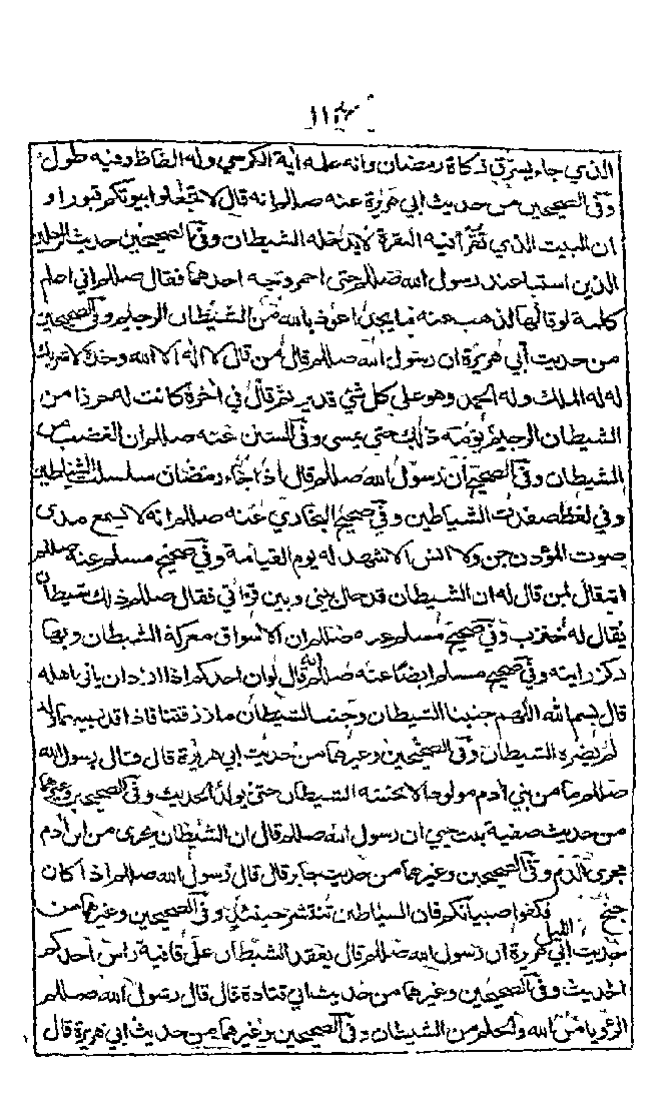 الذي جاء يسرق زكاة رمضان وانه علمه اية الكرسي وله الفاظ وفيه طول
وفى الصحيحين من حديث ابي هريرة عنه صللم انه قال لا تجعلوا بيوتكم قبورا و
ان البيت الذي تقرأ فيه البقرة لا يدخله الشيطان وفى الصحيحين حديث الرجلين
الذين استبا عند رسول الله صللم حتى احمر وجه احدهما فقال صللم اني اعلم
كلمة لو قالها لذهب عنه ما يجد اعوذ بالله من الشيطان الرجيم وفى الصحيحين
من حديث أبي هريرة ان رسول الله صللم قال من قال لا اله الا الله وحده لا شريك
له له الملك وله الحمد وهو على كل شئ قدير ثم قال في اخره كانت له حرزا من
الشيطان الرجيم يومه ذلك حتى يمسى وفى السنن عنه صللم ان الغضب من
الشيطان وفى الصحيح أن رسول الله صللم قال اذا جاء رمضان سلسلت الشياطين
وفي لفظ صفدت الشياطين وفى صحيح البخاري عنه صللم انه لا يسمع مدى
صوت المؤذن جن ولا انس الا شهد له يوم القيامة وفى صحيح مسلم عنه صللم
انه قال لمن قال له ان الشيطان قد حال بيني وبين قرأتي فقال صللم ذلك شيطان
يقال له خنزب وفى صحيح مسلم عنه صللم ان الاسواق معركة الشيطان وبها
ركز رايته وفى صحيح مسلم ايضا عنه صللم انه قال لو ان احدكم اذا اراد ان ياتى اهله
قال بسم الله اللهم جنبنا الشيطان وجنب الشيطان ما رزقتنا فاذا قدر بينهما ولد
لم يضره الشيطان وفى الصحيحين وغيرهما من حديث ابي هريرة قال وقال رسول الله
صللم ما من بني أدم مولود الا نخسه الشيطان حتى يولد الحديث وفى الصحيحين وغيرهما
من حديث صفية بنت حيي ان رسول الله صللم قال ان الشيطان يجرى من ابن أدم
مجرى الدم وفى الصحيحين وغيرهما من حديث جابر قال قال رسول الله صللم اذا كان
جنح الليل فكفوا صبيانكم فان الشياطين تنتشر حينئذ وفى الصحيحين وغيرهما من
حديث ابي هريرة أن رسول الله صللم قال يعقد الشيطان على قافية رأس احدكم
الحديث وفى الصحيحين وغيرهما من حديث ابي قتادة قال قال رسول الله صللم
الرؤيا من الله والحلم من الشيطان وفى الصحيحين وغيرهما من حديث ابي هريرة قال